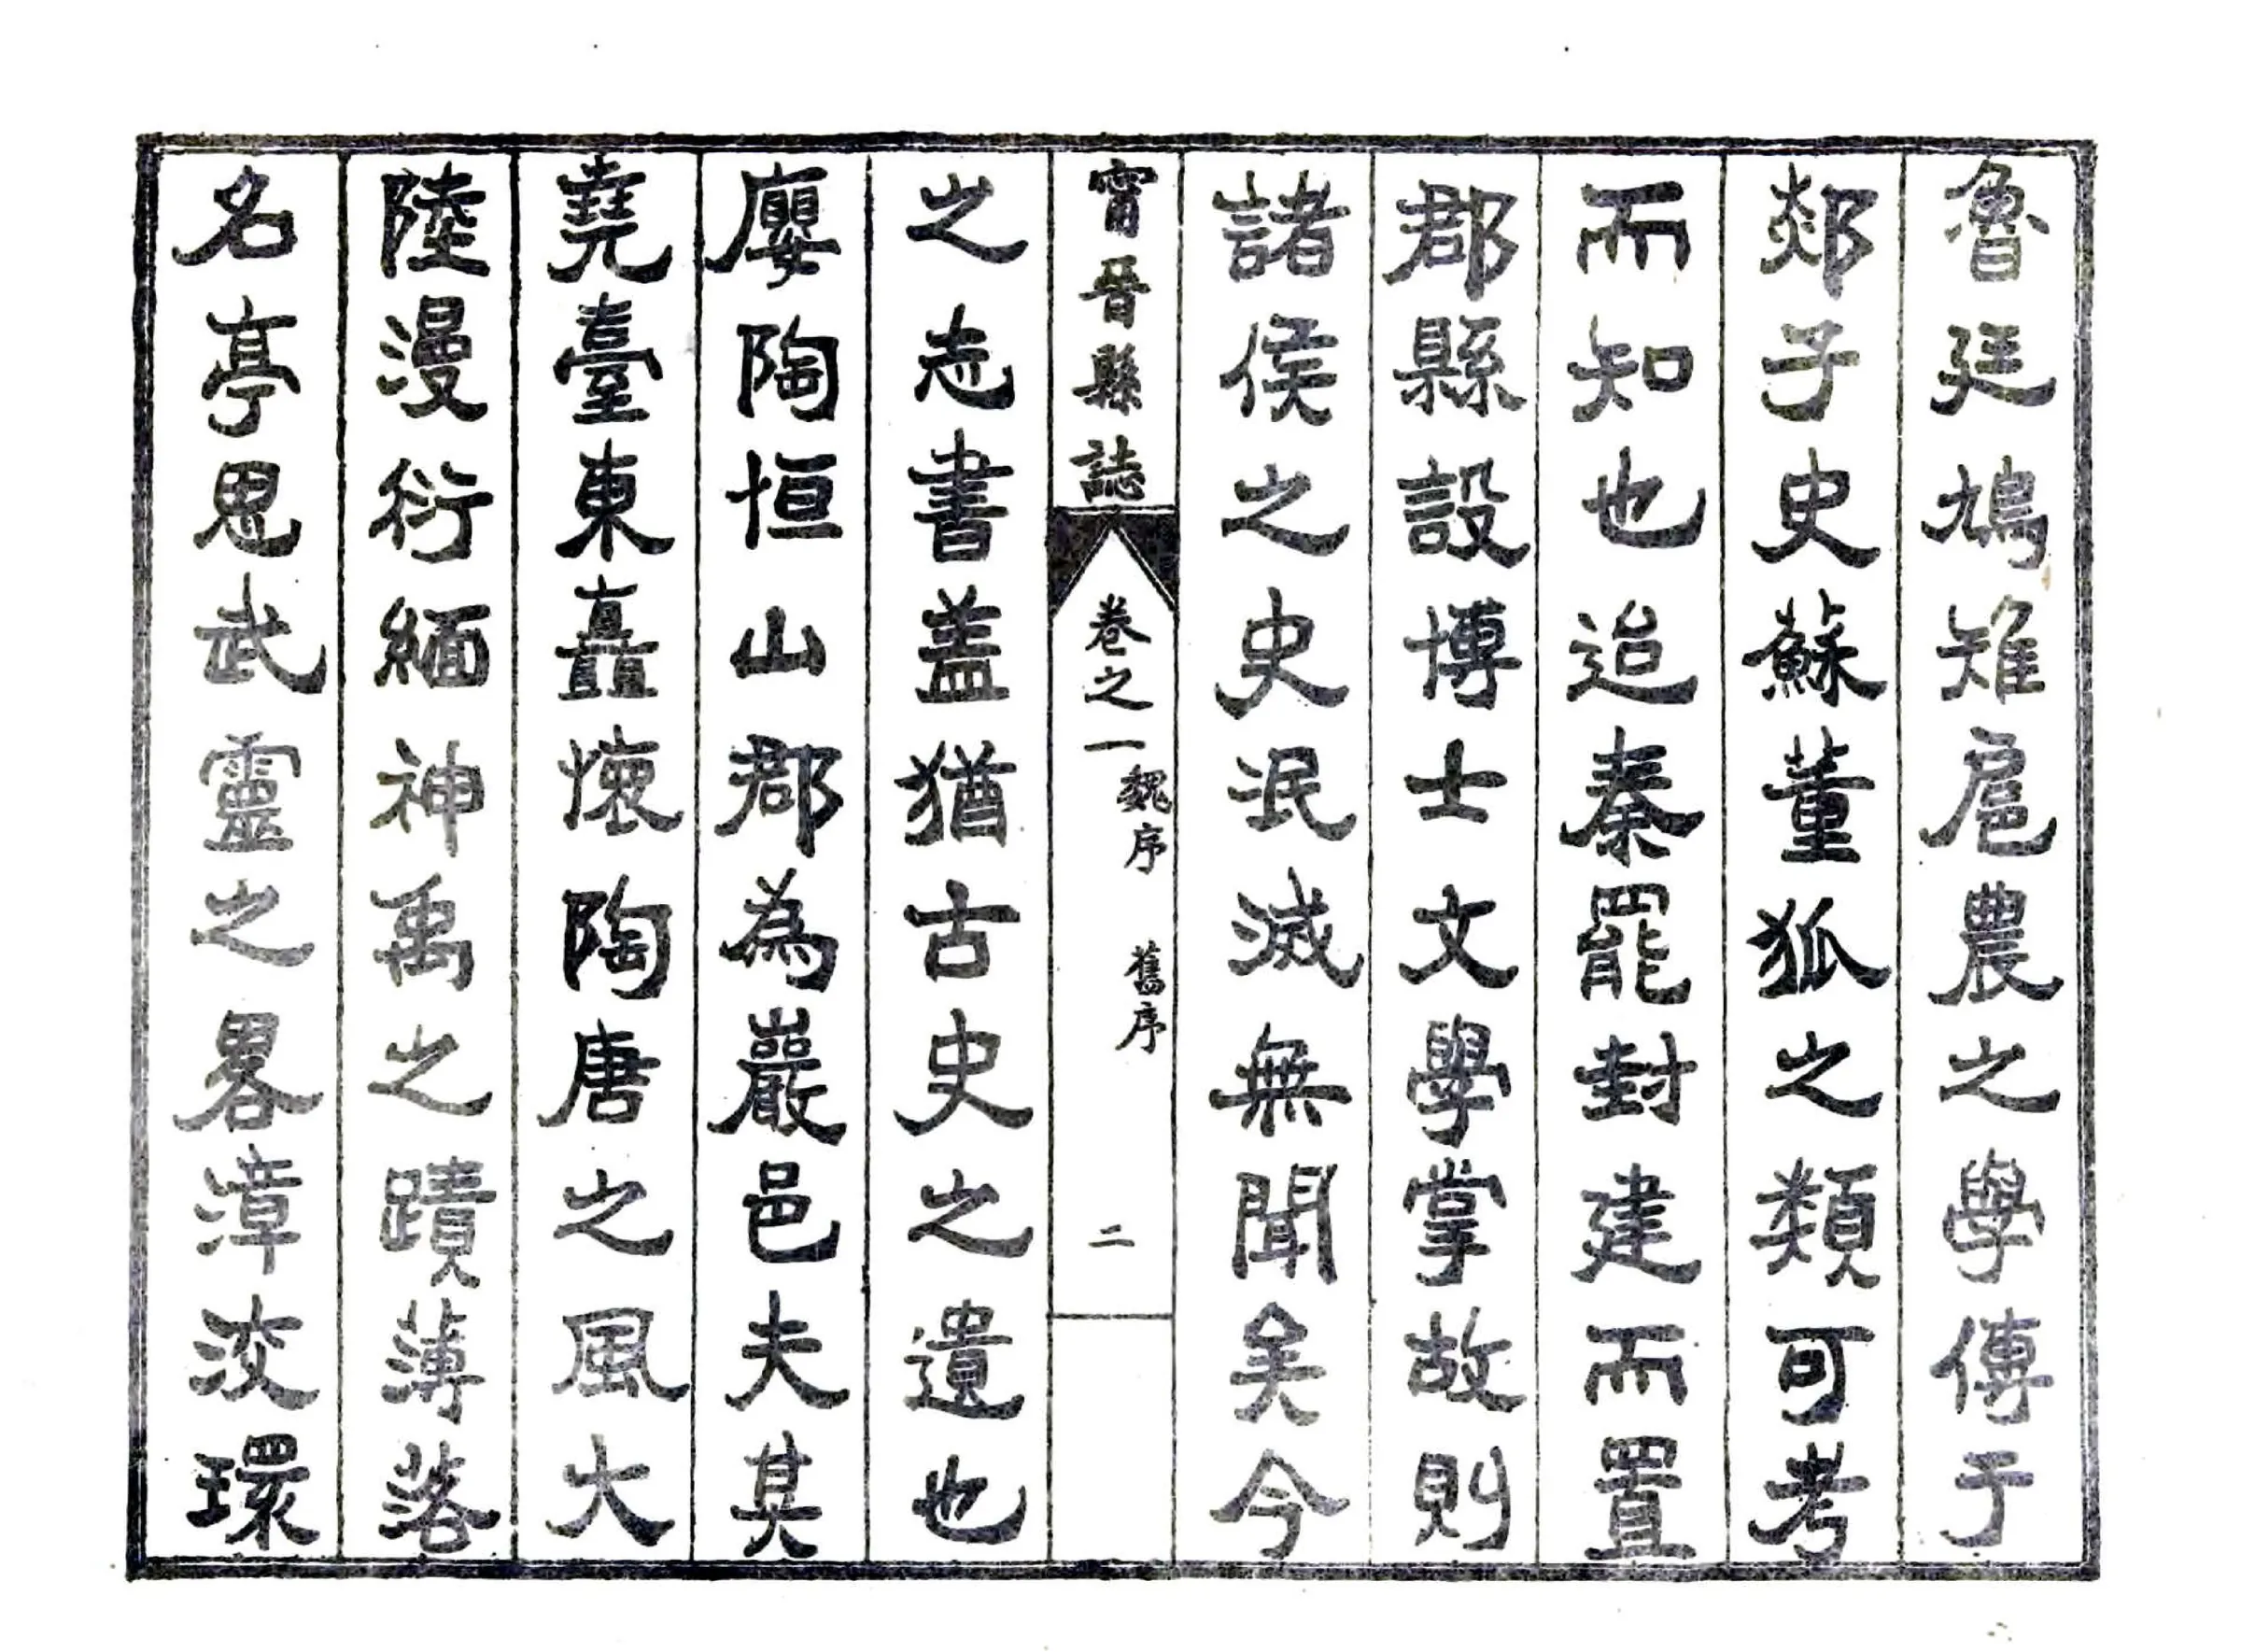 魯廷鳩雉扈農之學傳于
郯子史蘇董狐之類可考
而知也迨秦罷封建而置
郡縣設博士文學掌故則
諸侯之史泯滅無聞矣今
甯晉縣誌 卷之一 魏序 舊序 二
之志書盖猶古史之遺也
廮陶恒山郡為巖邑夫其
堯臺東矗懷陶唐之風大
陸漫衍緬神禹之蹟薄落
名亭思武靈之畧漳洨環